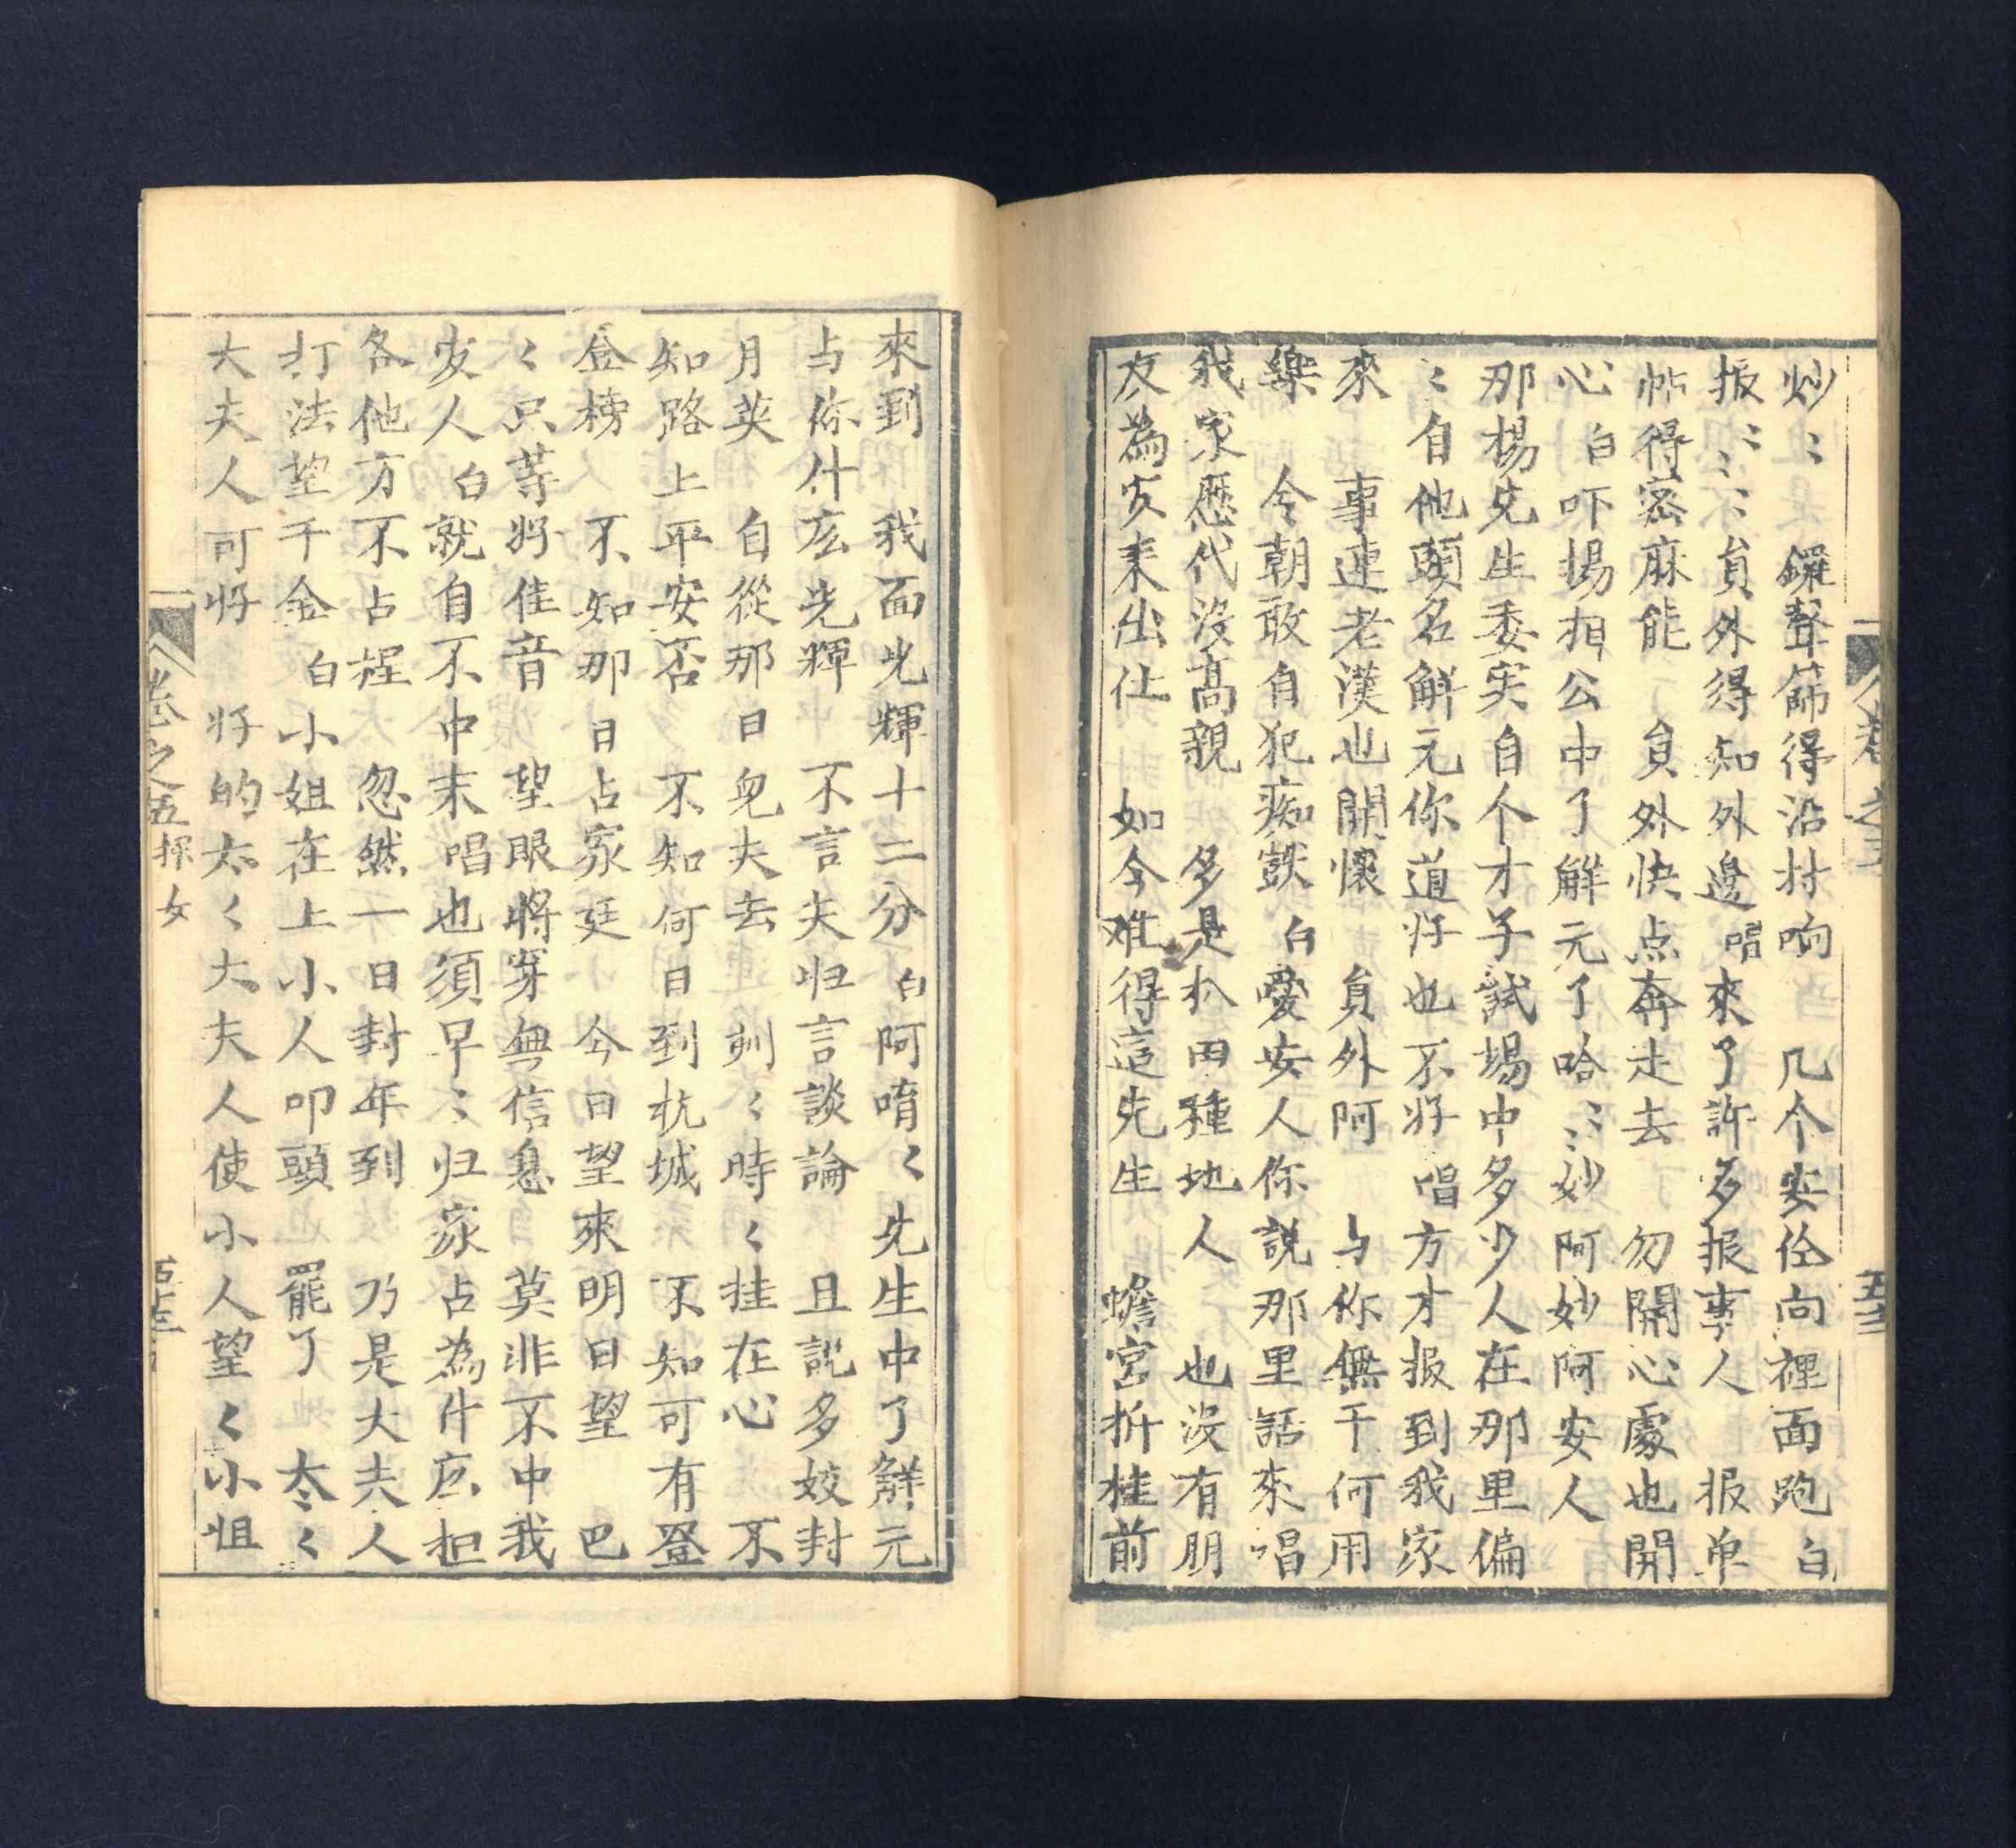 炒〻　鑼聲篩得沿村响　几个安伦向裡面跑白
报〻〻〻員外得知外边唱來了許多报事人　报单
帖得密麻能　員外快点奔走去　勿開心處也開
心白吓揚相公中了觧元了哈〻〻妙阿妙阿安人
那楊先生委实自个才子試場中多少人在那里偏
〻自他頭名觧元你道好也不好唱方才报到我家
來　事連老漢也開懷　員外阿　与你無干何用
樂　今朝敢自犯痴獃白愛安人你說那里話來唱
我家歷代没高親　多是扒田種地人　也没有朋
友為官耒出仕　如今难得這先生　蟾宮折桂前
來到　我面光輝十二分白阿唷〱先生中了觧元
与你什庅光輝　不言夫归言談論　且説多姣封
月英　自從那日兒夫去　刻〱時〱挂在心　不
知路上平安否　不知何日到杭城　不知可有登
金榜　不知那日占家廷　今日望來明日望　巴
〱只等好佳音　望眼將穿無信息　莫非不中我
官人白就自不中末唱也須早〻归家占為什庅担
各他方不占程　忽然一日封年到　乃是大夫人
打法望千金白小姐在上小人叩頭　罷了　太〱
大夫人可好　好的太〱大夫人使小人望〱小姐
卷之五探女